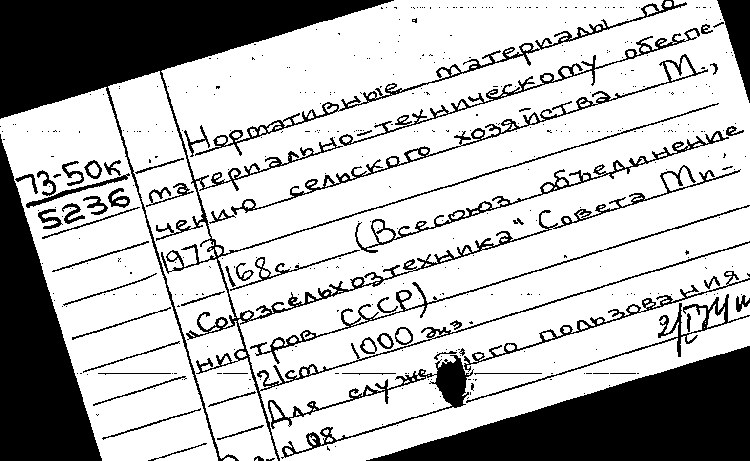 Нормативные материалы по
материально-техническому обеспе-
чению сельского хозяйства. М.,
1973.
168с. (Всесоюз. объединение
„Союзсельхозтехника" Совета Ми-
нистров СССР).
21см. 1000 экз.
Для служебного пользования.
73-50к
5236